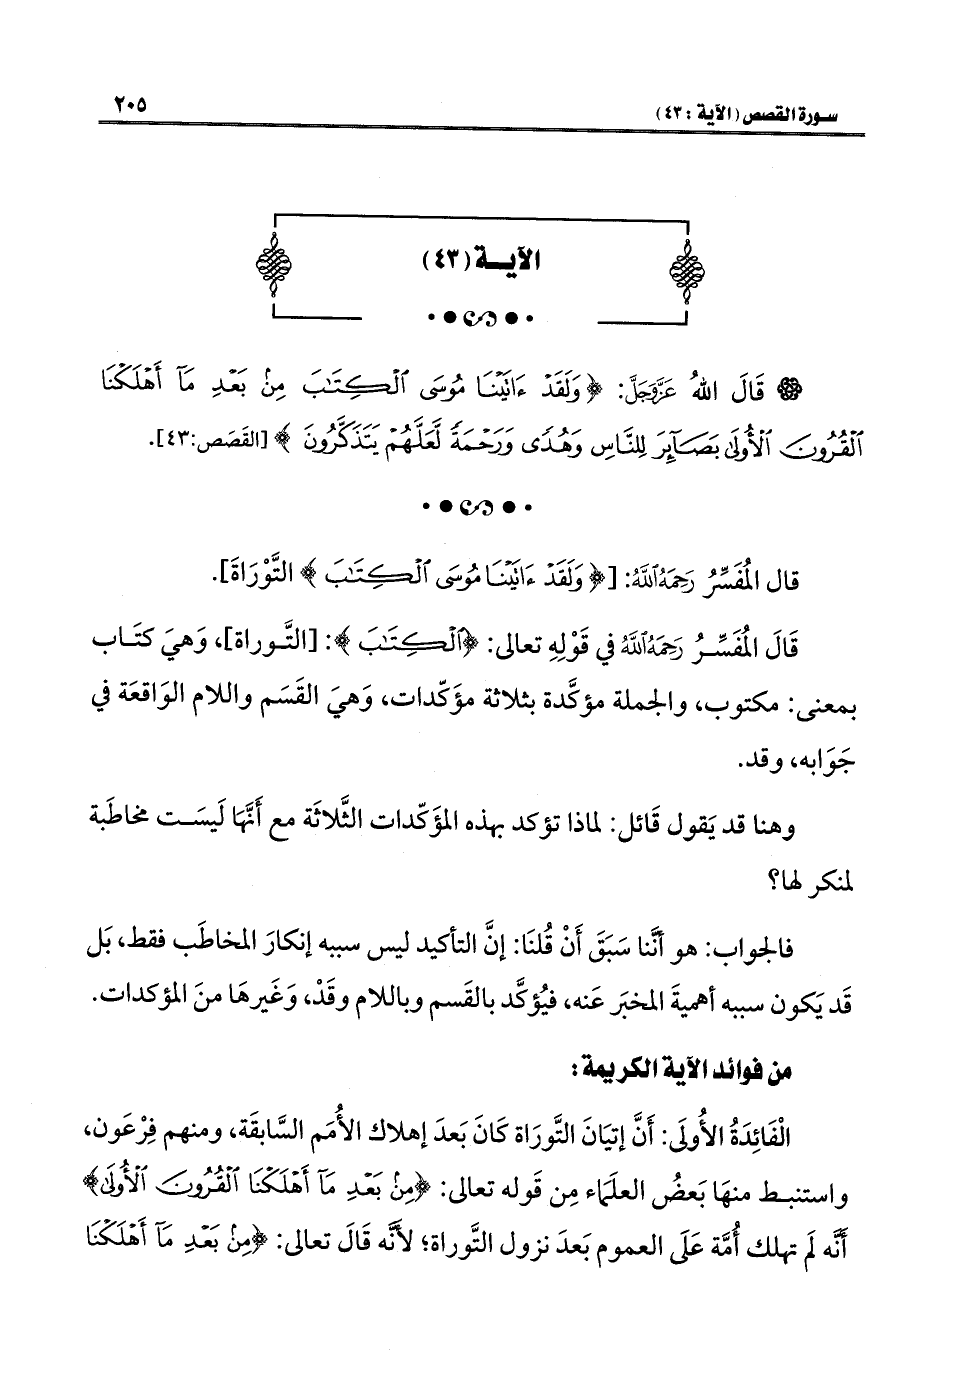 سورة القصص (الآية : ٤٣)
٢٠٥
الآيــة (٤٣)
قَالَ اللهُ عَزَّوَجَلَّ: ﴿ وَلَقَدْ ءَاتَيْنَا مُوسَى ٱلْكِتَٰبَ مِنۢ بَعْدِ مَآ أَهْلَكْنَا
ٱلْقُرُونَ ٱلْأُولَىٰ بَصَآئِرَ لِلنَّاسِ وَهُدًى وَرَحْمَةً لَّعَلَّهُمْ يَتَذَكَّرُونَ ﴾ [القَصَص:٤٣].
قال المُفَسِّرُ رَحِمَهُ اللَّهُ: [﴿ وَلَقَدْ ءَاتَيْنَا مُوسَى ٱلْكِتَٰبَ ﴾ التَّوْرَاةَ].
قَالَ المُفَسِّــرُ رَحِمَهُ اللَّهُ في قَوْلِهِ تعالى: ﴿ٱلْكِتَٰبَ ﴾: [التَّـوراة]، وَهيَ كتَـاب
بمعنى: مكتوب، والجملة مؤكَّدة بثلاثة مؤَكّدات، وَهيَ القَسَم واللام الوَاقعَة في
جَوَابه، وقد.
وهنا قد يَقول قَائل: لماذا تؤكد بهذه المؤَكّدات الثَّلاثَة مع أَنَّهَا لَيسَــت مخاطَبة
لمنكر لها؟
فالجواب: هو أَنَّنا سَبَقَ أَنْ قُلنَا: إنَّ التأكيد ليس سببه إنكارَ المخاطَب فقط، بَل
قَد يَكون سببه أهميةَ المخبَر عَنه، فيُؤكَّد بالقَسم وباللام وقَدْ، وَغَيرهَا منَ المؤكدات.
من فوائد الآية الكريمة:
الْفَائِدَةُ الأُولَى: أَنَّ إتيَانَ التَّوراة كَانَ بَعدَ إهلاك الأُمَم السَّابقَة، ومنهم فِرْعَون،
واستنبـط منهَا بَعضُ العلَماء مِن قَوله تعالى: ﴿مِنۢ بَعْدِ مَآ أَهْلَكْنَا ٱلْقُرُونَ ٱلْأُولَىٰ﴾
أَنَّه لَم تهلك أُمَّة عَلَى العموم بَعدَ نزول التَّوراة؛ لأنَّه قَالَ تعالى: ﴿مِنۢ بَعْدِ مَآ أَهْلَكْنَا